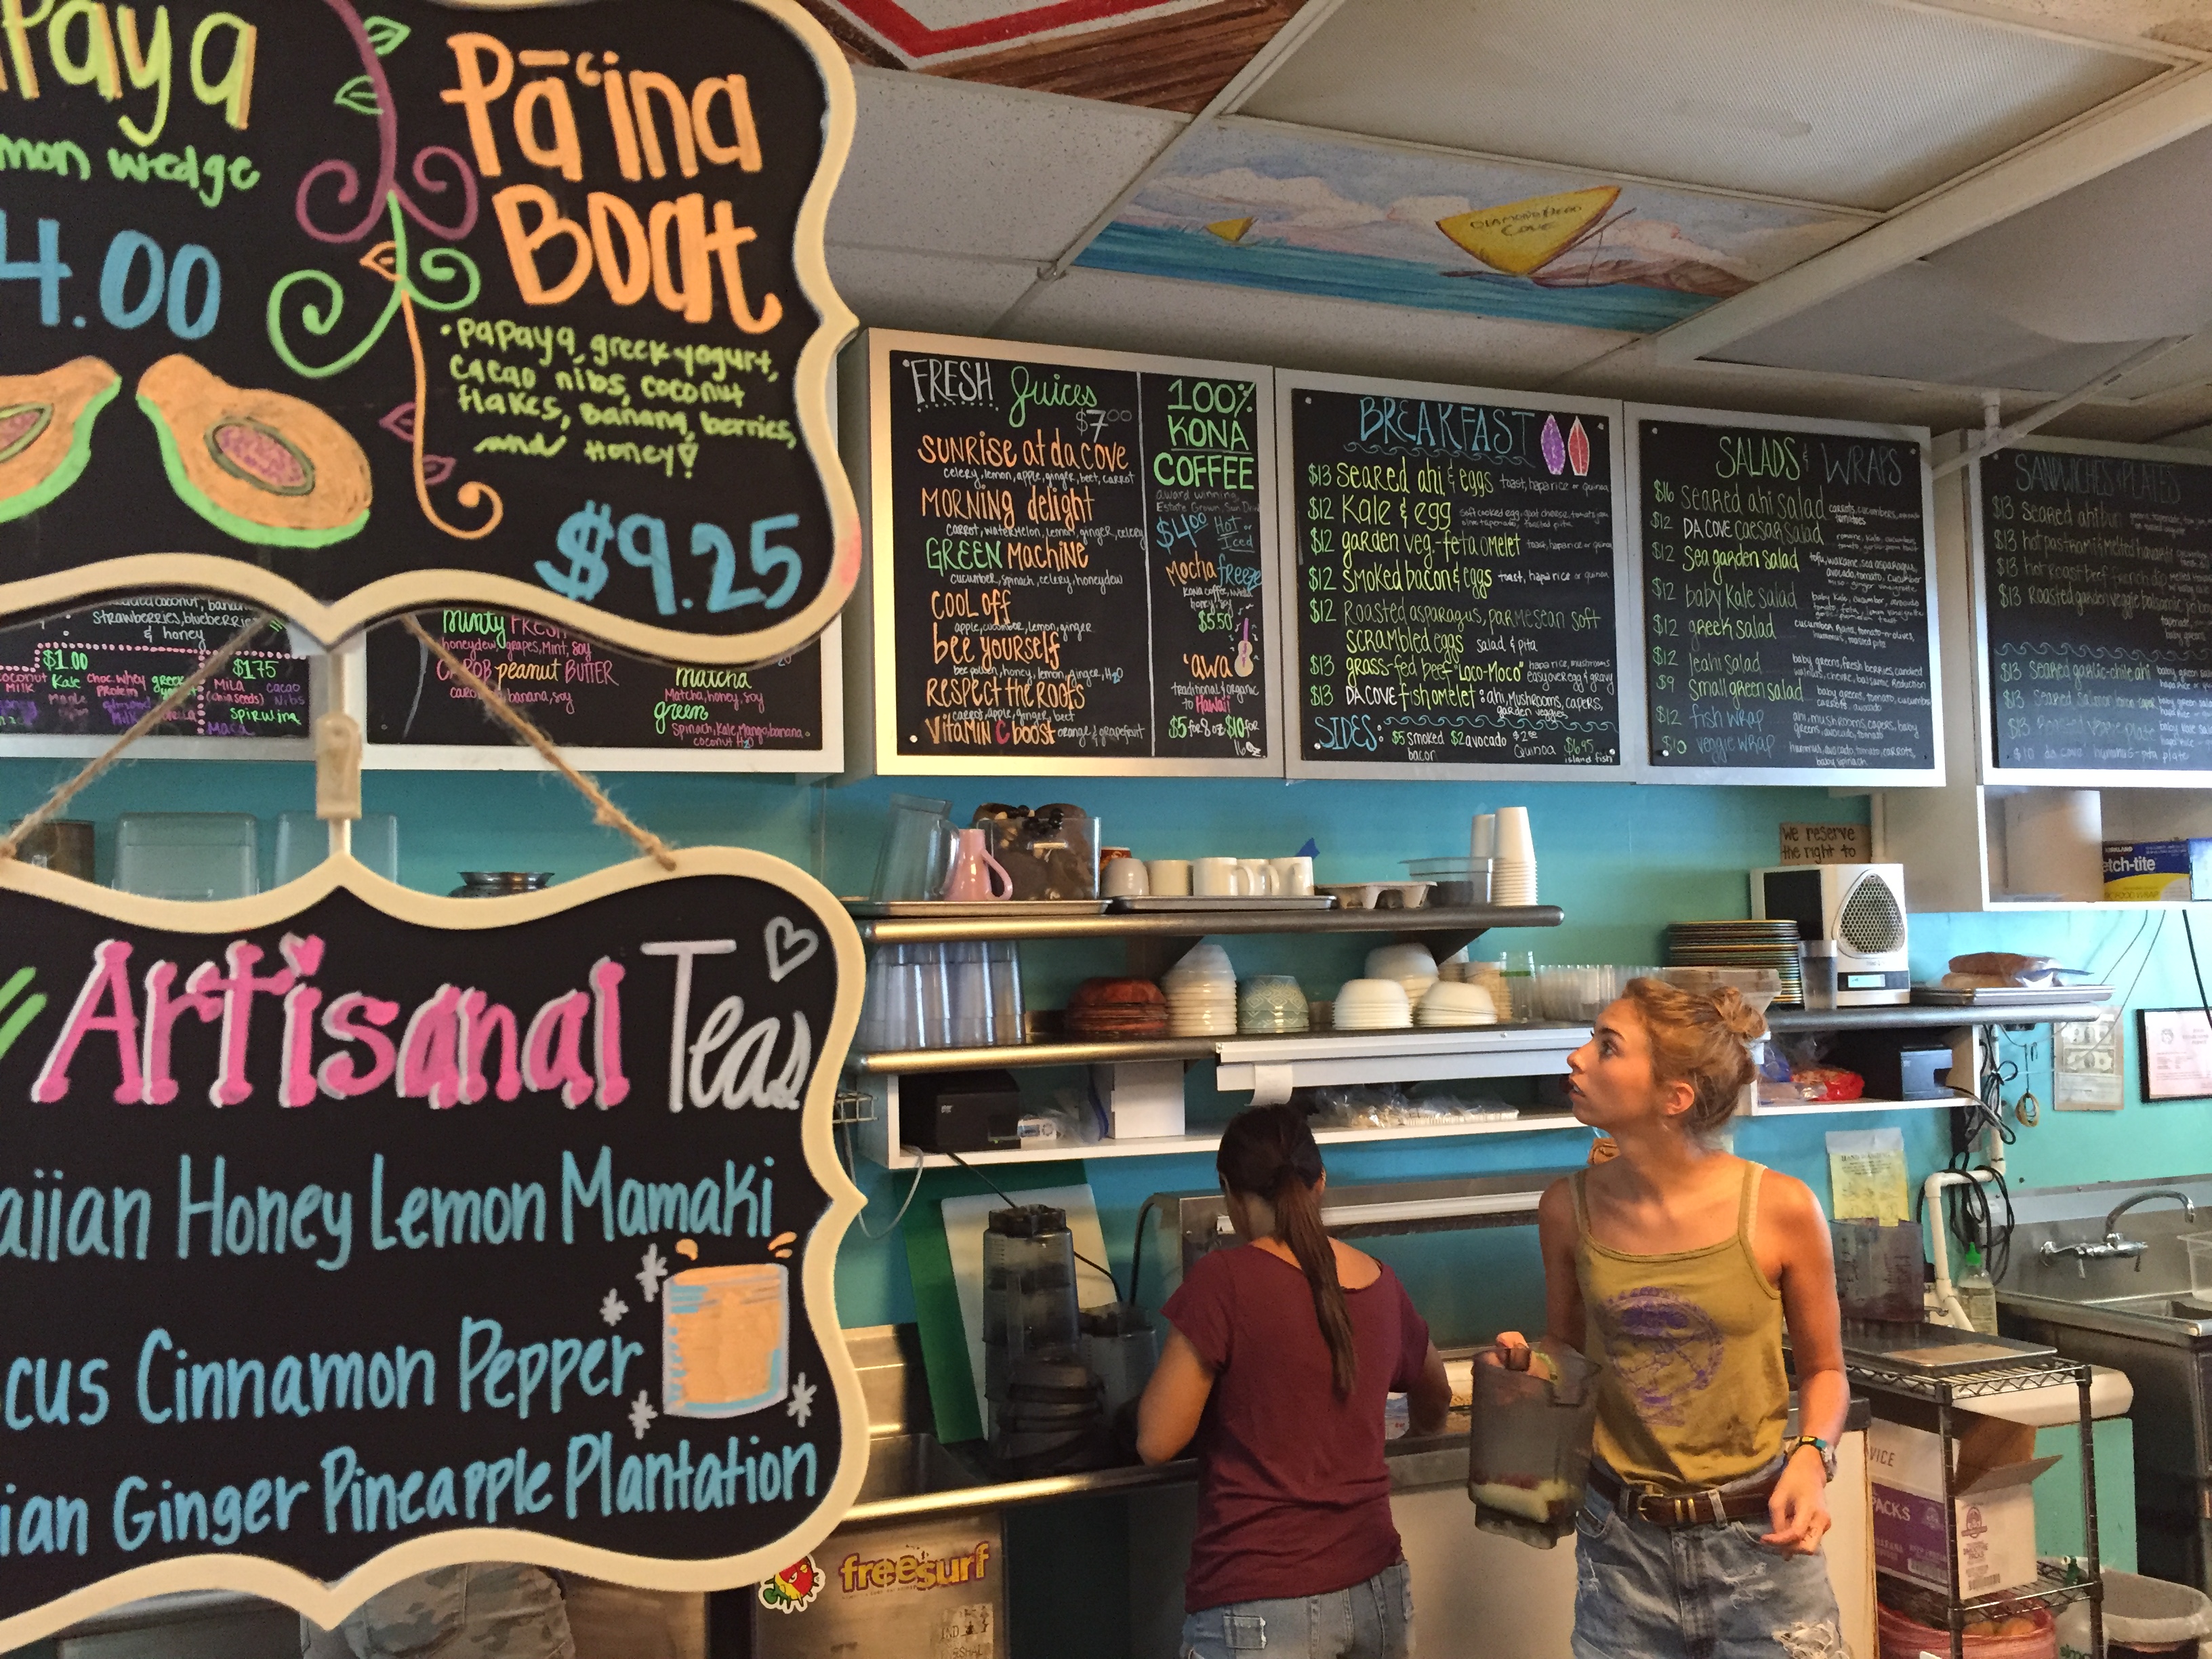 paya
mon wedge
4.00
Pā'ina
Boat
• papaya, greek yogurt,
cacao nibs, coconut
flakes, banana, berries,
and Honey!
$9.25
strawberries, blueberries
& honey
$1.00
Kale
choc. whey
Protein
$1.75
Mila
(chia seeds)
cacao
nibs
Spirulina
Maca
Minty FRESH
honeydew, grapes, Mint, Soy
CAROB peanut BUTTER
banana, soy
matcha
Matcha, honey, soy
green
Spinach, Kale, Mango, banana
coconut H2O
Artisanal Teas
aiian Honey Lemon Mamaki
cus Cinnamon Pepper
ian Ginger Pineapple Plantation
DIAMOND HEAD
COVE
FRESH Juices
$7.00
SUNRISE at da cove
celery, lemon, apple, ginger, beet, carrot
MORNING delight
carrot, watermelon, lemon, ginger, celery
GREEN MacHiNE
cucumber, spinach, celery, honeydew
COOL off
apple, cucumber, lemon, ginger
bee yourself
bee pollen, honey, lemon, ginger, H2O
RESPECT the ROOTS
carrot, apple, ginger, beet
VITAMIN C boost orange & grapefruit
100%
KONA
COFFEE
award winning
Estate Grown, Sun Dried
$4.00 Hot or
Iced
Mocha freeze
$5.50
'awa
traditional & organic
to Hawaii
$5 for 8 oz $10 for
16 oz
BREAKFAST
$13 Seared ahi & eggs toast, hapa rice or quinoa
$12 Kale & egg soft cooked egg, goat cheese, tomato jam
olive tapenade, toasted pita
$12 garden veg.-feta omelet toast, hapa rice or quinoa
$12 smoked bacon & eggs toast, hapa rice or quinoa
$12 Roasted asparagus, parmesean soft
scrambled eggs salad & pita
$13 grass-fed beef "Loco-Moco" hapa rice, mushrooms
easy over egg & gravy
$13 DA COVE fish omelet: ahi, mushrooms, capers,
garden veggies
SIDES: $5 smoked
bacon $2 avocado Quinoa $6.95
island fish
SALADS & WRAPS
$16 seared ahi salad carrots, cucumbers, avocado
tomatoes
$12 DA COVE caesar salad
$12 Sea garden salad tofu, wakame, sea asparagus,
avocado, tomato, cucumber
$12 baby kale salad baby kale, cucumber, avocado
$12 greek salad
$12 leahi salad baby greens, fresh berries, candied
walnuts, chevre, balsamic reduction
$9 small green salad baby greens, tomato, cucumber
carrots, avocado
$12 fish wrap ahi, mushrooms, capers, baby
greens, avocado, tomato
$10 veggie wrap hummus, avocado, tomato, carrots,
baby spinach
SANDWICHES & PLATES
$13 seared ahi bun
$13 hot pastrami & melted havarti
$13 hot roast beef french dip
$13 Roasted garden veggie balsamic
$13 seared garlic-chile ahi
$13 seared salmon
$13 Roasted veggie plate
$10 da cove hummus-pita plate
We reserve
the right to
KIRKLAND
etch-tite
freesurf
VICE
PACKS